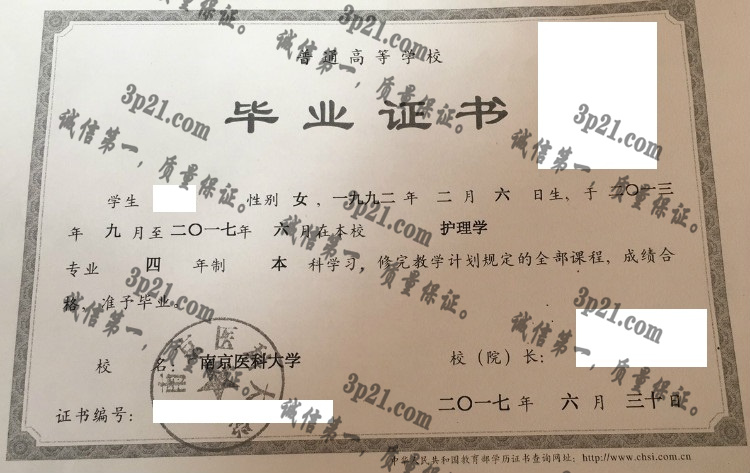 普通高等学校
毕业证书
学生 性别 女，一九九二年 二 月 六 日生，于 二〇一三
年 九 月至 二〇一七年 六 月在本校 护理学
专业 四 年制 本 科学习，修完教学计划规定的全部课程，成绩合
格，准予毕业。
校 名： 南京医科大学
校（院）长：
证书编号：
二〇一七年 六 月 三十日
中华人民共和国教育部学历证书查询网址：http://www.chsi.com.cn
3p21.com
诚信第一，质量保证。
3p21.com
诚信第一，质量保证。
3p21.com
诚信第一，质量保证。
3p21.com
诚信第一，质量保证。
3p21.com
诚信第一，质量保证。
3p21.com
诚信第一，质量保证。
3p21.com
诚信第一，质量保证。